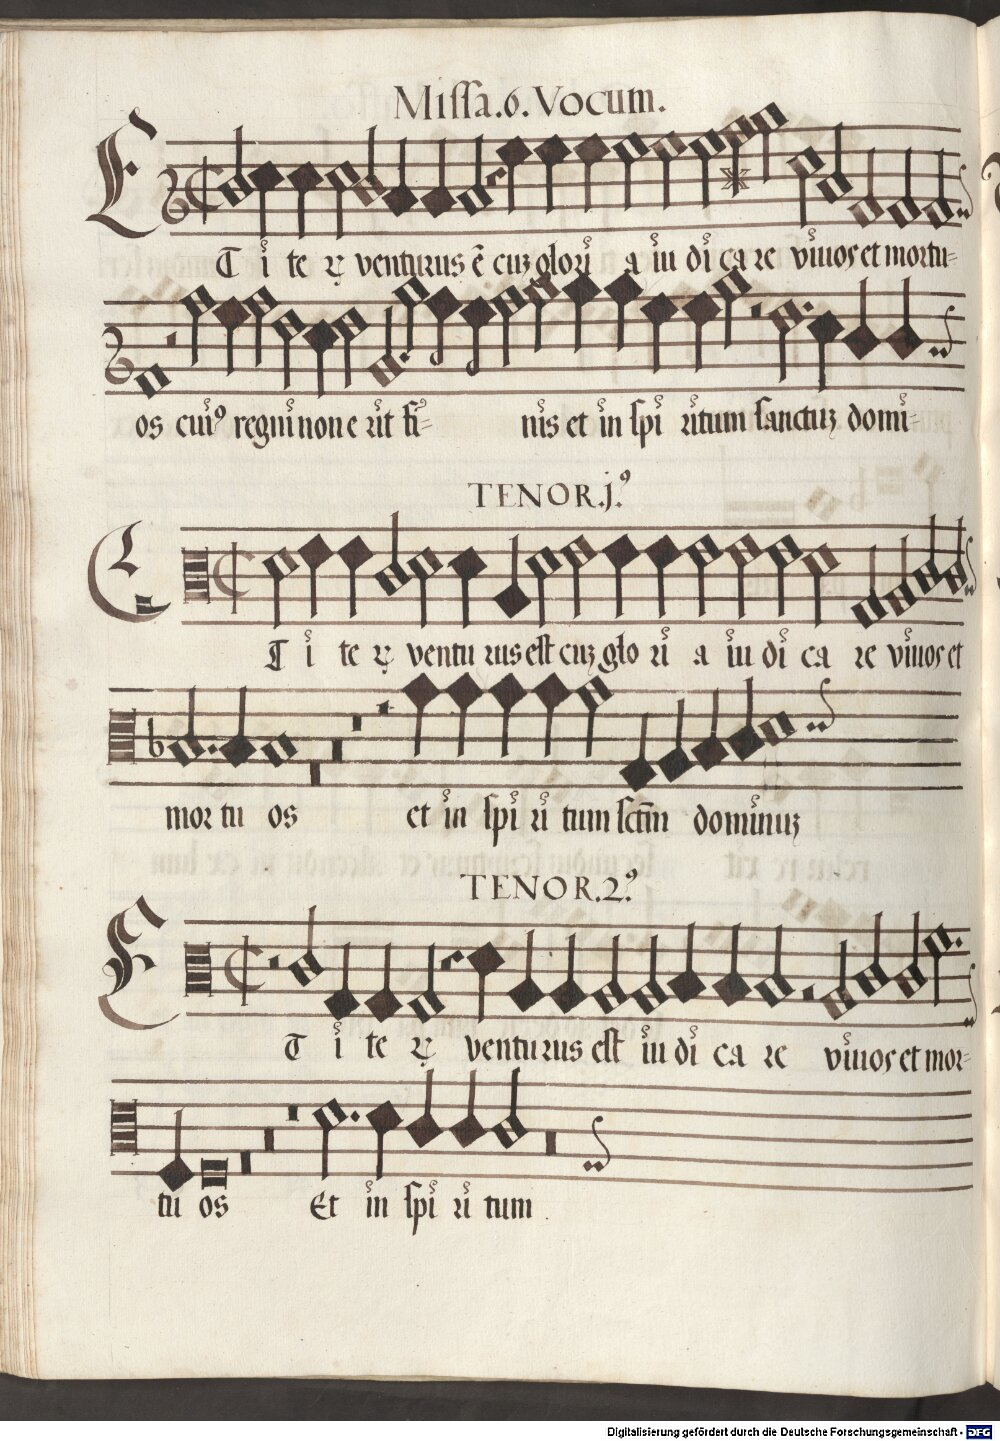 Missa.6.Vocum.
ET i te ꝝ venturus ē cuz glori a iu di ca re viuos et mortu=
os cuiꝰ regni non e rit fi= nis et in spi ritum sanctuz domi=
TENOR.j.ꝰ
ET i te ꝝ ventu rus est cuz glo ri a iu di ca re viuos et
mor tu os et in spi ri tum sctm dominuz
TENOR.2.ꝰ
ET i te ꝝ ventu rus est iu di ca re viuos et mor=
tu os Et in spi ri tum
Digitalisierung gefördert durch die Deutsche Forschungsgemeinschaft - DFG